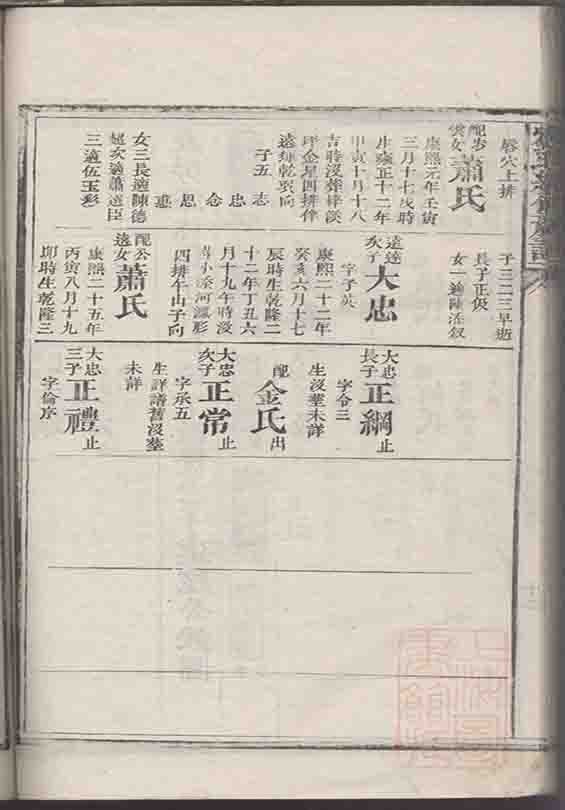 唇穴上排
配步
雲女
蕭氏
康熙元年壬寅
三月十七戌時
生雍正十二年
甲寅十月十八
吉時沒葬
坪金星四排伴
遠
向
子五
志
忠
念
思
女三長適陳德
超次適蕭遠臣
三適伍玉彩
子三二三早逝
長子正俶
女一適陳
遠達
次子
大忠
字子英
康熙二十二年
癸亥六月十七
辰時生乾隆二
十二年丁丑六
月十九午時沒
葬小
河
形
四排午山子向
配公
遠女
蕭氏
康熙二十五年
丙寅八月十九
卯時生乾隆三
大忠
長子
正綱
止
字令三
生沒葬未詳
配
金氏
出
大忠
次子
正常
止
字承五
生詳譜舊沒葬
未詳
大忠
三子
正禮
止
字倫序